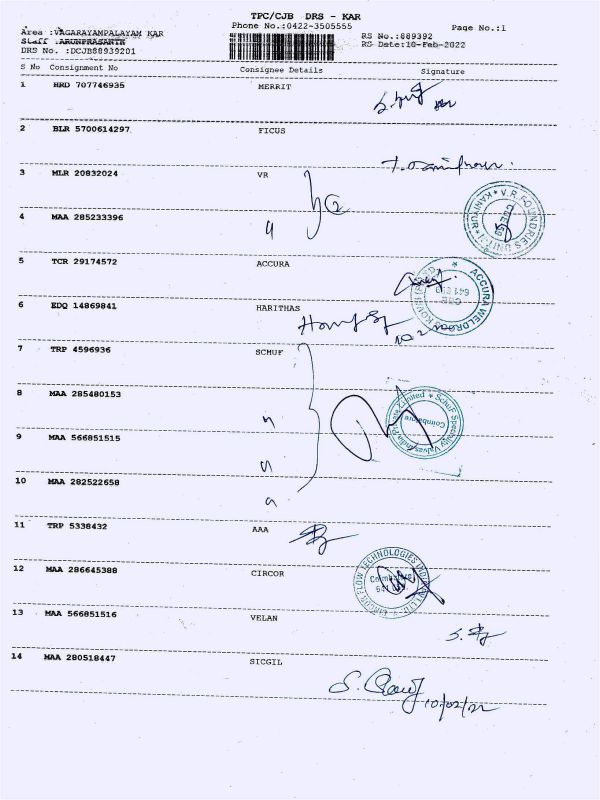 TPC/CJB DRS - KAR
Phone No.:0422-3505555
Page No.:1
Area :VAGARAYAMPALAYAM KAR
RS No.:889392
Staff :ARUNPRASANTH
RS Date:10-Feb-2022
DRS No. :DCJB88939201
S No Consignment No Consignee Details Signature
1 HRD 707746935 MERRIT
2 BLR 5700614297 FICUS
3 MLR 20832024 VR
V.R.FOUNDRIES UNIT-1 KANIYUR
4 MAA 285233396
5 TCR 29174572 ACCURA
ACCURA WELDRODS KOVAI
CBE
6 EDQ 14869841 HARITHAS
7 TRP 4596936 SCHUF
8 MAA 285480153
SchuF Speciality Valves India Private Limited
Coimbatore
9 MAA 566851515
10 MAA 282522658
11 TRP 5338432 AAA
12 MAA 286645388 CIRCOR
CIRCOR FLOW TECHNOLOGIES INDIA PVT LTD
Coimbatore
13 MAA 566851516 VELAN
14 MAA 280518447 SICGIL
10/02/22